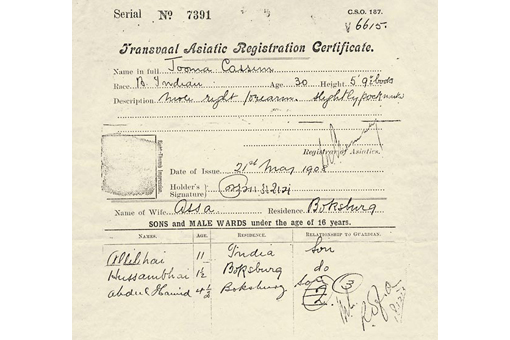 Serial No 7391
C.S.O. 187.
8615.
Transvaal Asiatic Registration Certificate.
Name in full Jooma Cassim
Race B. Indian Age 30 Height 5'9½ boots
Description mole right forearm. slightly pock marks
Registrar of Asiatics.
Date of Issue 21st May 1908
Holder's
Signature
Name of Wife Assa Residence Boksburg
SONS AND MALE WARDS under the age of 16 years.
NAMES. AGE. RESIDENCE. RELATIONSHIP TO GUARDIAN.
Allibhai 11 India Son
Hussambhai 1½ Boksburg do
Abdul Hamid 4½ Boksburg
3